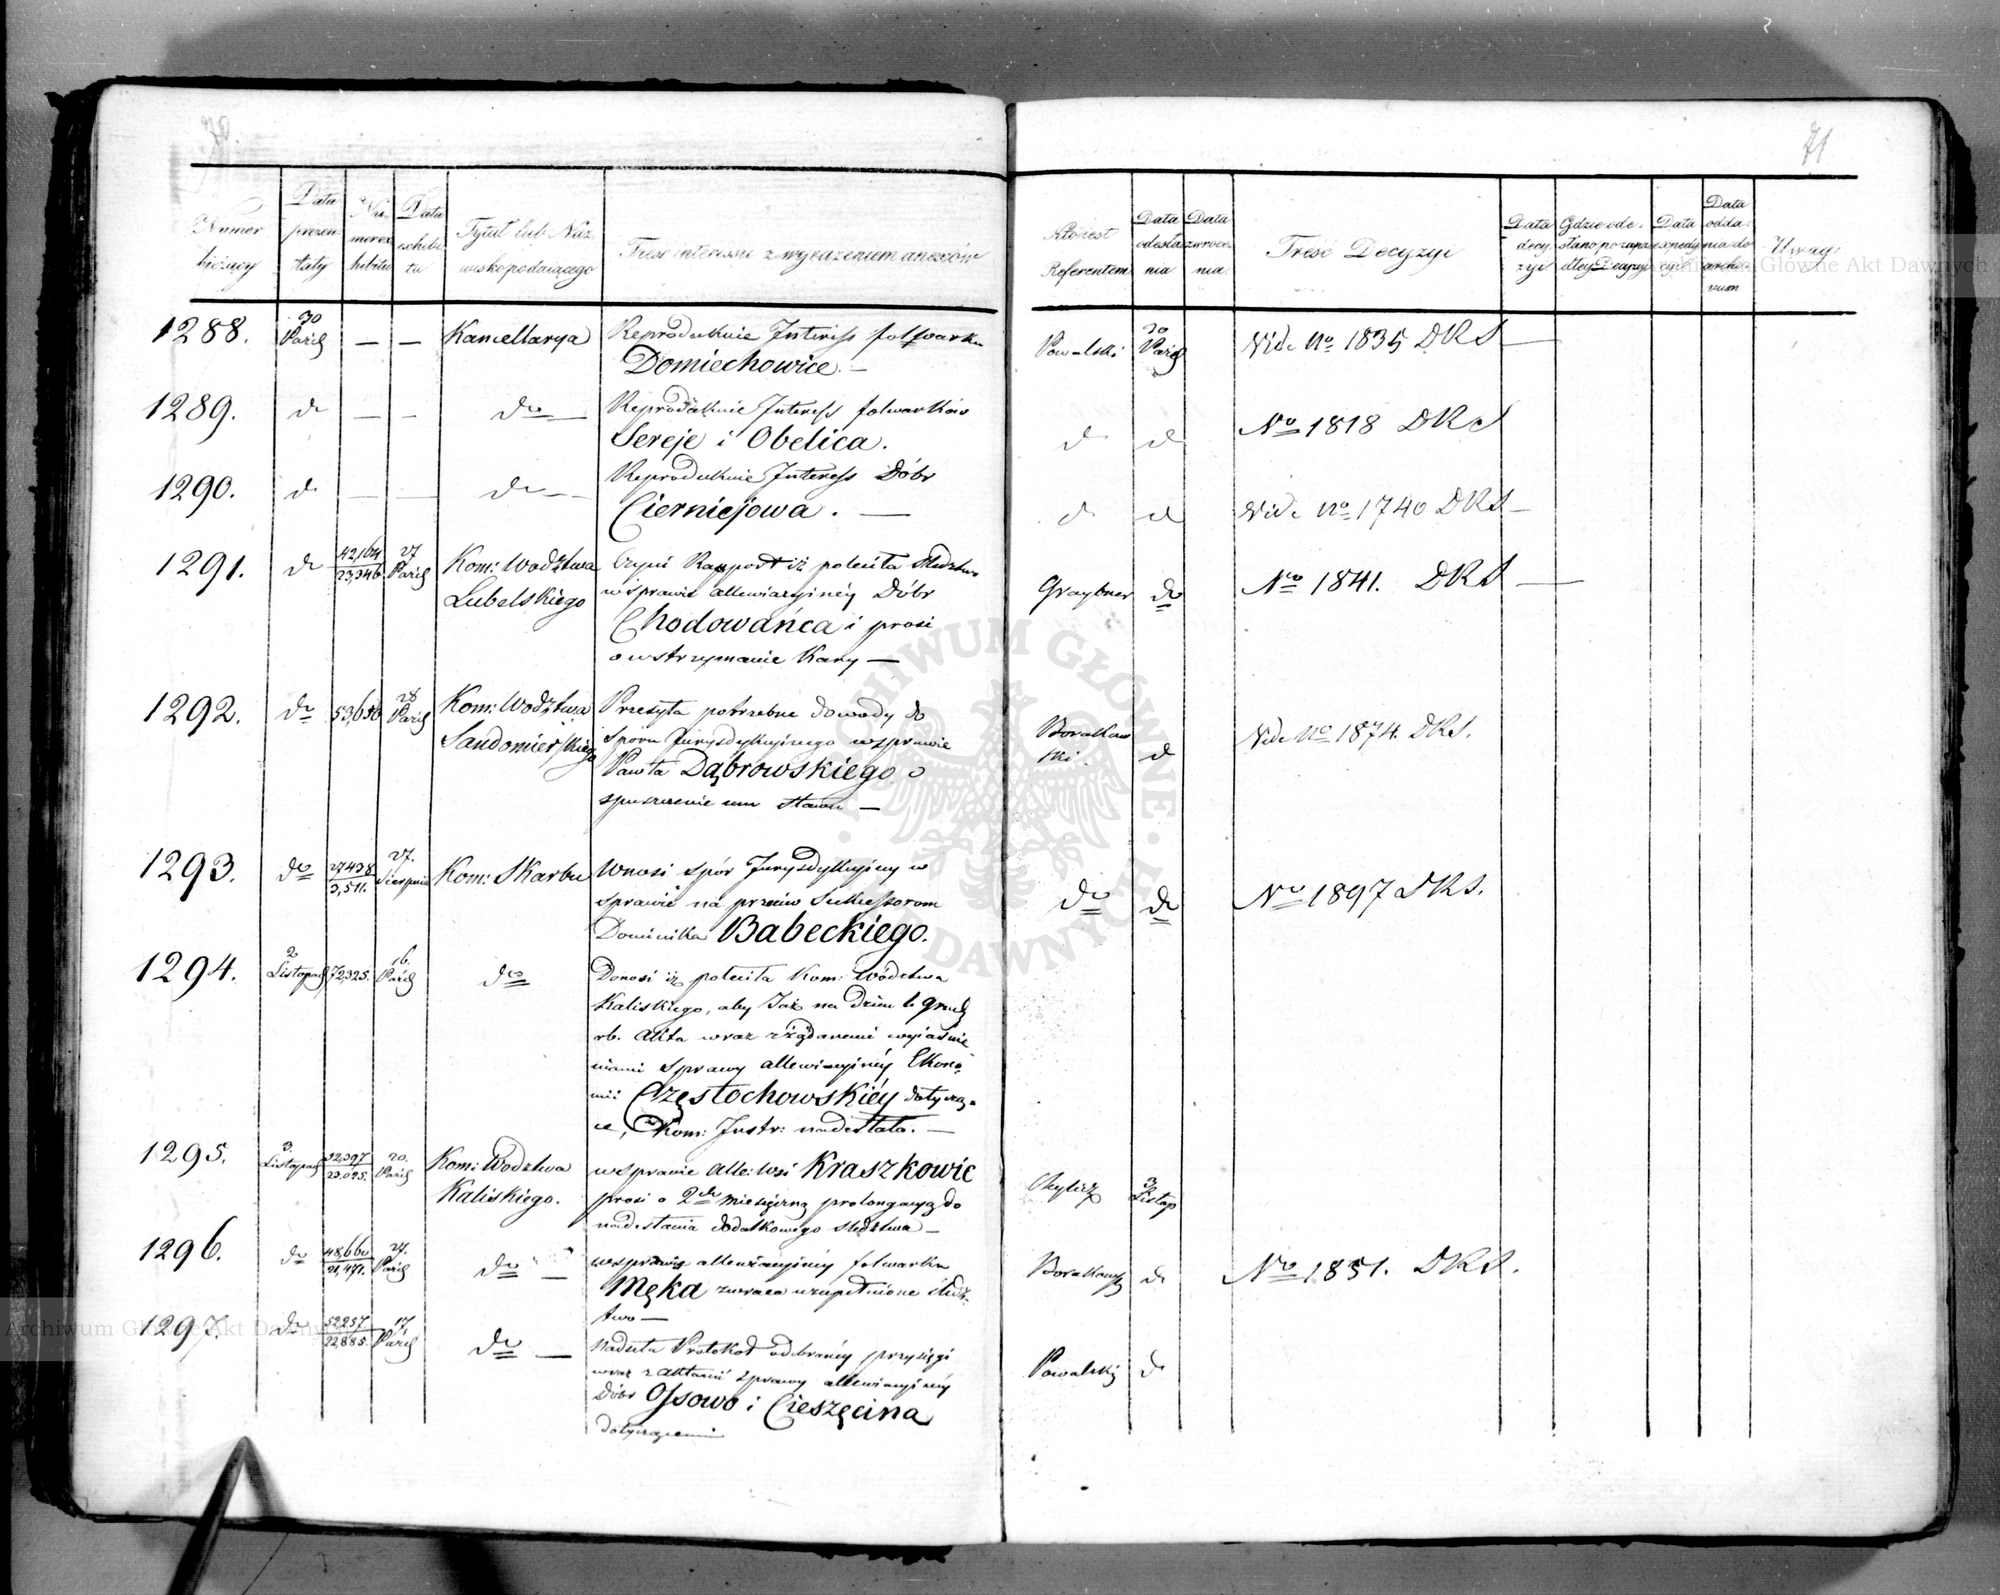 70.
71
Numer bieżący
Data prezentaty
Numer exhibitu
Data exhibitu
Tytuł lub Nazwisko podającego
Treść interessu z wyrażeniem anexów
Kto jest Referentem
Data odesłania
Data zwrócenia
Treść Decyzyi
Data decyzyi
Gdzie odesłano po zapadłey Decyzyi
Data expedycyi
Data oddania do archivum
Uwagi
1288. 30 Paźd — — Kancellarya Reprodukuie Interess folwarku
Domiechowice. —
Powalski 30 Paźd Vide No 1835 DKS —
1289. do — — do — Reprodukuie Interess folwarków
Sereje i Obelica.
do do No 1818 DKS
1290. do — — do — Reprodukuie Interess Dóbr
Cierniejowa. —
do do Vide No 1740 DKS —
1291. do 42,164 / 23,346 27 Paźd Kom: Wodztwa Lubelskiego Czyni Rapport iż poleciła śledztwo
w sprawie allewiacyinéy Dóbr
Chodowańca i prosi
o wstrzymanie kary —
Graybner do No 1841. DKS —
1292. do 53,656 28 Paźd Kom: Wodztwa Sandomierskiego Przesyła potrzebne dowody do
Sporu Jurysdykcyinego w sprawie
Pawła Dąbrowskiego o
spuszczenie mu stawu —
Borakowski do Vide No 1874. DKS.
1293. do 27,438 / 3,511. 27. Sierpnia Kom: Skarbu Wnosi spór Jurysdykcyiny w
sprawie na przeciw Sukcessorom
Dominika Babeckiego.
do do No 1897 DKS.
1294. 2 Listopad 72,325. 16. Paźd do Donosi iż poleciła Kom: Wództwa
Kaliskiego, aby Taż na dzień 1. Grud
rb. akta wraz z żądanemi wyiaśnie
niami sprawy allewiacyinéy Ekono
mii Częstochowskiéy dotyczą-
ce, Kom: Instr: nadesłała. —
1295. 3. Listopad 52,397 / 23,025. 20. Paźd Kom: Wodztwa Kaliskiego. w sprawie alle: wsi Kraszkowic
prosi o 2 miesięczną prolongacyą do
nadesłania dodatkowego śledztwa —
3 Listop
1296. do 48,660 / 21,471. 27. Paźd do — w sprawie allewiacyinéy folwarku
Męka zwraca uzupełnione śledz-
two —
Borakowski do No 1851. DKS.
1297. do 52,257 / 22,885. 17. Paźd do — Nadseła Protokół odebranéy przysięgi
wraz z aktami sprawy allewiacyinéy
Dóbr Ossowo i Cieszęcina
dotyczącemi
Powalski do
ARCHIWUM GŁÓWNE AKT DAWNYCH
Archiwum Główne Akt Dawnych
Archiwum Główne Akt Dawnych